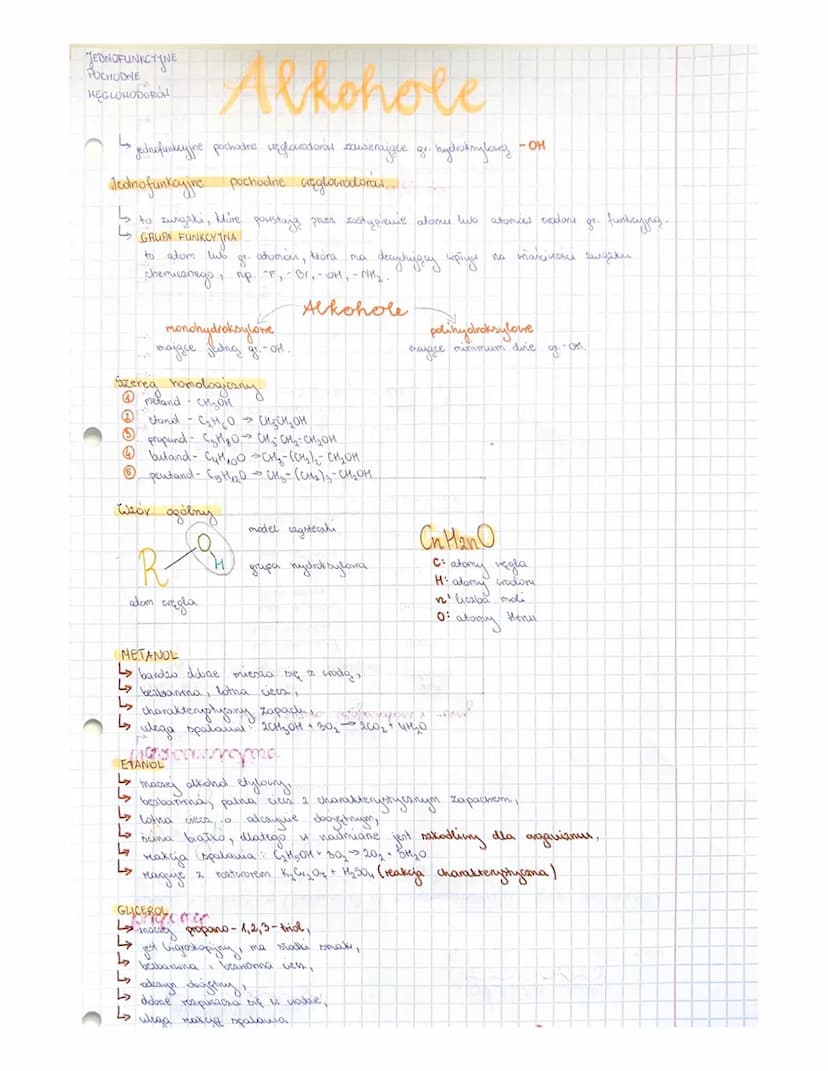 JEDNOFUNKCYJNE
POCHODNE
WĘGLOWODORÓW
Alkohole
↳ jednofunkcyjne pochodne węglowodorów zawierające gr. hydroksylową -OH
Jednofunkcyjne pochodne węglowodorów
↳ to związki, które powstają przez zastąpienie atomu lub atomów wodoru gr. funkcyjną.
↳ GRUPA FUNKCYJNA
to atom lub gr. atomów, która ma decydujący wpływ na właściwości związku
chemicznego, np. -F, -Br, -OH, -NH₂.
Alkohole
monohydroksylowe
mające jedną gr. -OH.
polihydroksylowe
mające minimum dwie gr. -OH.
Szereg homologiczny
① metanol - CH₃OH
② etanol - C₂H₆O → CH₃CH₂OH
③ propanol - C₃H₈O → CH₃-CH₂-CH₂OH
④ butanol - C₄H₁₀O → CH₃-(CH₂)₂-CH₂OH
⑤ pentanol - C₅H₁₂O → CH₃-(CH₂)₃-CH₂OH
Wzór ogólny
model cząsteczki
R O H
grupa hydroksylowa
atom węgla
CnH2nO
C: atomy węgla
H: atomy wodoru
n: liczba moli
O: atomy tlenu
METANOL
↳ bardzo dobrze miesza się z wodą,
↳ bezbarwna, lotna ciecz,
↳ charakterystyczny zapach,
↳ ulega spalaniu: 2CH₃OH + 3O₂ → 2CO₂ + 4H₂O
ETANOL
↳ inaczej alkohol etylowy,
↳ bezbarwna, palna ciecz z charakterystycznym zapachem,
↳ lotna ciecz, o odczynie obojętnym,
↳ ścina białko, dlatego w nadmiarze jest szkodliwy dla organizmu,
↳ reakcja spalania: C₂H₅OH + 3O₂ → 2O₂ + 3H₂O
↳ reaguje z roztworem K₂Cr₂O₇ + H₂SO₄ (reakcja charakterystyczna)
GLICEROL
↳ inaczej propano-1,2,3-triol,
↳ jest higroskopijny, ma słodki smak,
↳ bezbarwna i bezwonna ciecz,
↳ odczyn obojętny,
↳ dobrze rozpuszcza się w wodzie,
↳ ulega reakcji spalania